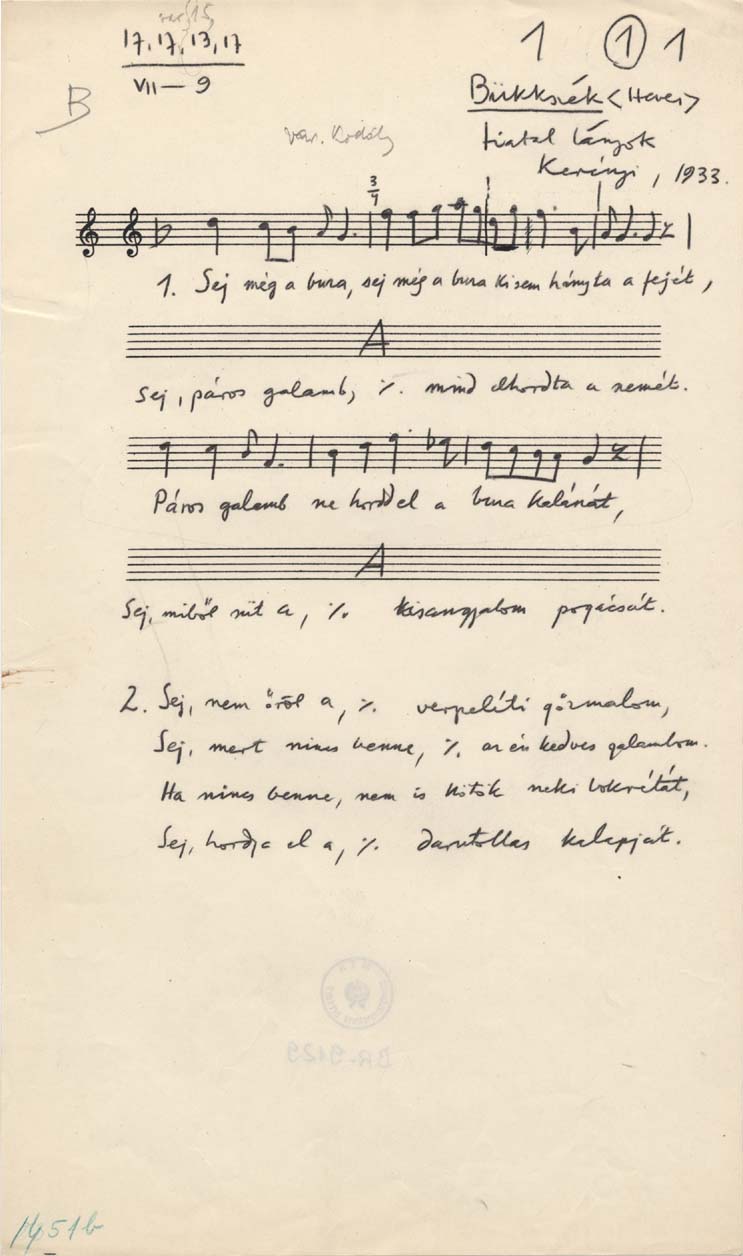 var. 15,
17, 17, 13, 17
VII — 9
B
1 1 1
Bükkszék <Heves>
fiatal lányok
Kerényi, 1933.
var. Kodály
3/4
1. Sej még a buza, sej még a buza ki sem hányta a fejét,
A
Sej, páros galamb, ·/. mind elhordta a szemét.
Páros galamb ne hordd el a buza kalászát,
A
Sej, miből süt a, ·/. kisangyalom pogácsát.
2. Sej, nem őröl a, ·/. verpeléti gőzmalom,
Sej, mert nincs benne, ·/. az én kedves galambom.
Ha nincs benne, nem is kötök neki bokrétát,
Sej, hordja el a, ·/. darutollas kalapját.
BR-9129
51b